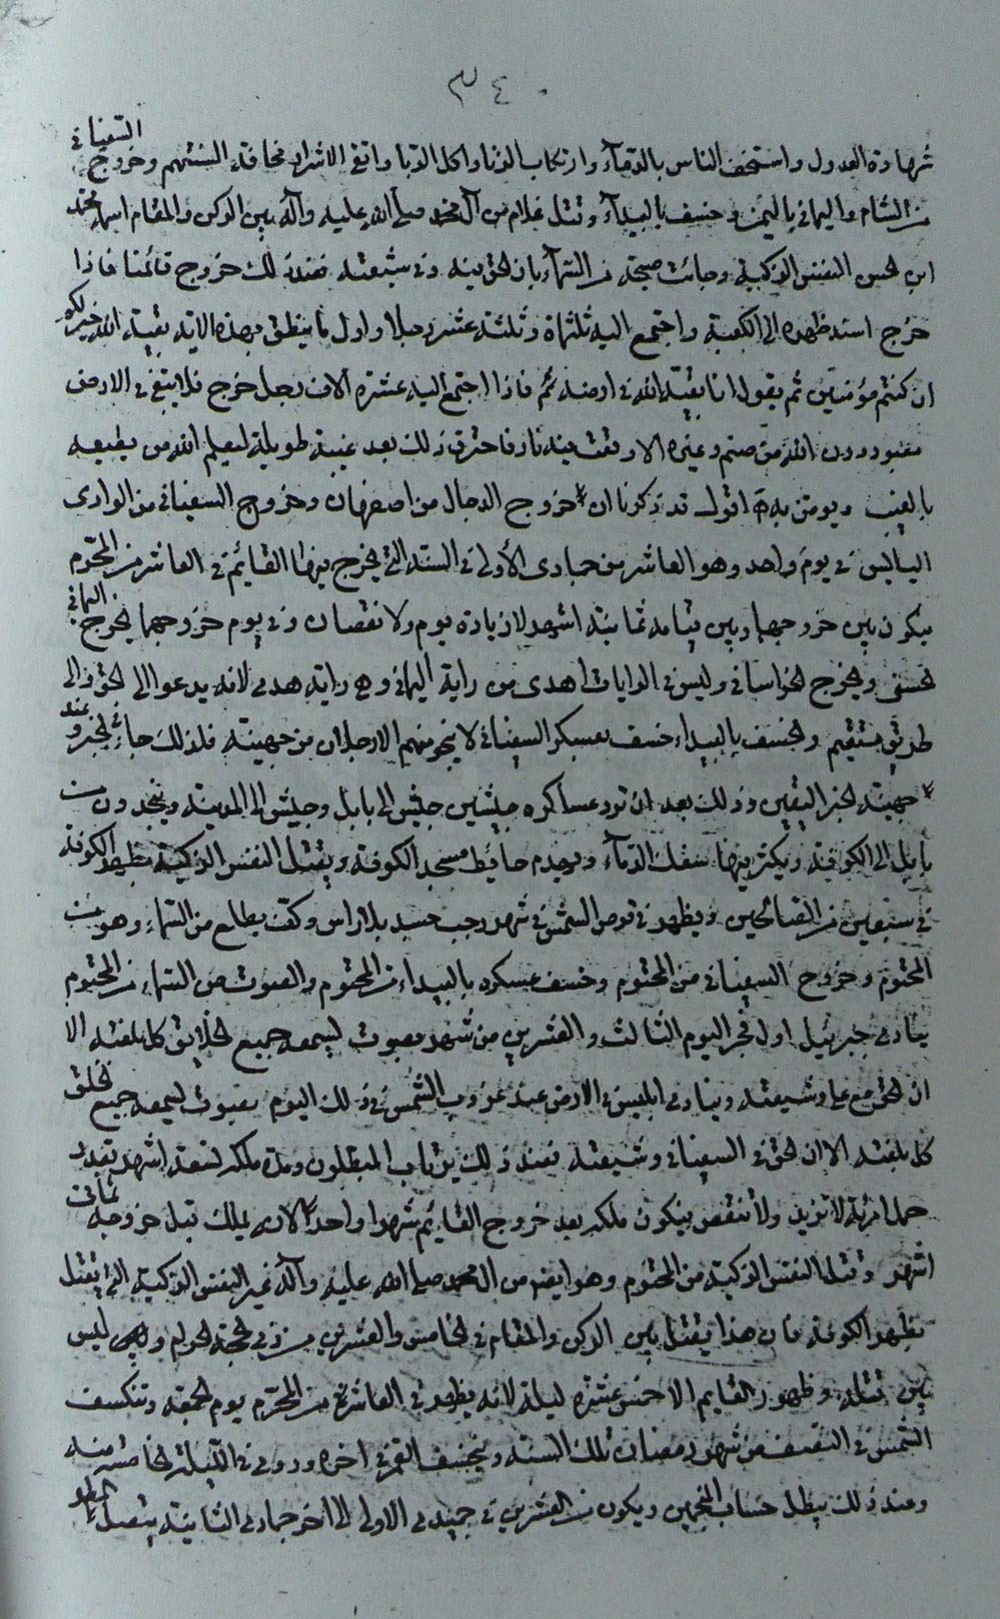 ٣٤
شهادة العدول واستخف الناس بالدماء وارتكاب الزنا واكل الربا واتقى الاشرار مخافة السنتهم وخروج السفياني
من الشام واليماني باليمن وخسف بالبيداء وقتل غلام من آل محمد صلى الله عليه وآله بين الركن والمقام اسمه محمد
ابن الحسن النفس الزكية وجاءت صيحة من السماء بان الحق فيه وفي شيعته فعند ذلك خروج قائمنا فاذا
خرج اسند ظهره الى الكعبة واجتمع اليه ثلثمائة وثلثة عشر رجلا واول ما ينطق بهذه الاية بقية الله خير لكم
ان كنتم مؤمنين ثم يقول انا بقية الله في ارضه ثم فاذا اجتمع اليه عشرة الاف رجل خرج فلا يبقى في الارض
معبود دون الله من صنم وغيره الا وقعت فيه نار فاحترق ذلك بعد غيبة طويلة ليعلم الله من يطيعه
بالغيب ويومن به اقول قد ذكرنا ان خروج الدجال من اصفهان وخروج السفياني من الوادي
اليابس في يوم واحد وهو العاشر من جمادى الأولى في السنة التي يخرج فيها القائم في العاشر من المحرم
فيكون بين خروجهما وبين قيامه ثمانية اشهر لا زيادة يوم ولا نقصان وفي يوم خروجهما يخرج اليماني
الحسني ويخرج الخراساني وليس في الرايات اهدى من راية اليماني وهي راية هدى لانه يدعو الى الحق والى
طريق مستقيم والخسف بالبيداء خسف بعسكر السفياني لا ينجو منهم الا رجلان من جهينة فلذلك جاء الخبر وعند
جهينة الخبر اليقين وذلك بعد ان تورد عساكره جيشين جيش الى بابل وجيش الى المدينة وينحدرون من
بابل الى الكوفة ويكثر فيها سفك الدماء ويهدم حائط مسجد الكوفة ويقتل النفس الزكية بظهر الكوفة
في سبعين من الصالحين ويظهر في قرص الشمس في شهر رجب جسد بلا راس وكف يطلع من السماء وهو من
المحتوم وخروج السفياني من المحتوم وخسف عسكره بالبيداء من المحتوم والصوت من السماء من المحتوم
ينادي جبرئيل اول فجر اليوم الثالث والعشرين من شهر بصوت ليسمعه جميع الخلايق كل بلغته الا
ان الحق مع علي وشيعته وينادي ابليس في الارض عند غروب الشمس في ذلك اليوم بصوت ليسمعه جميع الخلق
كل بلغته الا ان الحق في السفياني وشيعته فعند ذلك يرتاب المبطلون ومدة ملكه تسعة اشهر بقدر
حمل امرئة لا تزيد ولا تنقص فيكون ملكه بعد خروج القايم شهرا واحدا لانه يملك قبل خروجه ثمانية
اشهر وقتل النفس الزكية من المحتوم وهو ايضا من ال محمد صلى الله عليه وآله غير النفس الزكية التي يقتل
بظهر الكوفة فان هذا يقتل بين الركن والمقام في الخامس والعشرين من ذي الحجة الحرام وليس
بين قتله وظهور القايم الا خمس عشرة ليلة لانه يظهر في العاشر من المحرم يوم الجمعة وتنكسف
الشمس في النصف من شهر رمضان تلك السنة وينخسف القمر في اخره وروي في الليلة الخامسة منه
وعند ذلك يبطل حساب المنجمين ويكون من العشرين في جمادى الاولى الى اخر جمادى الثانية يتصل